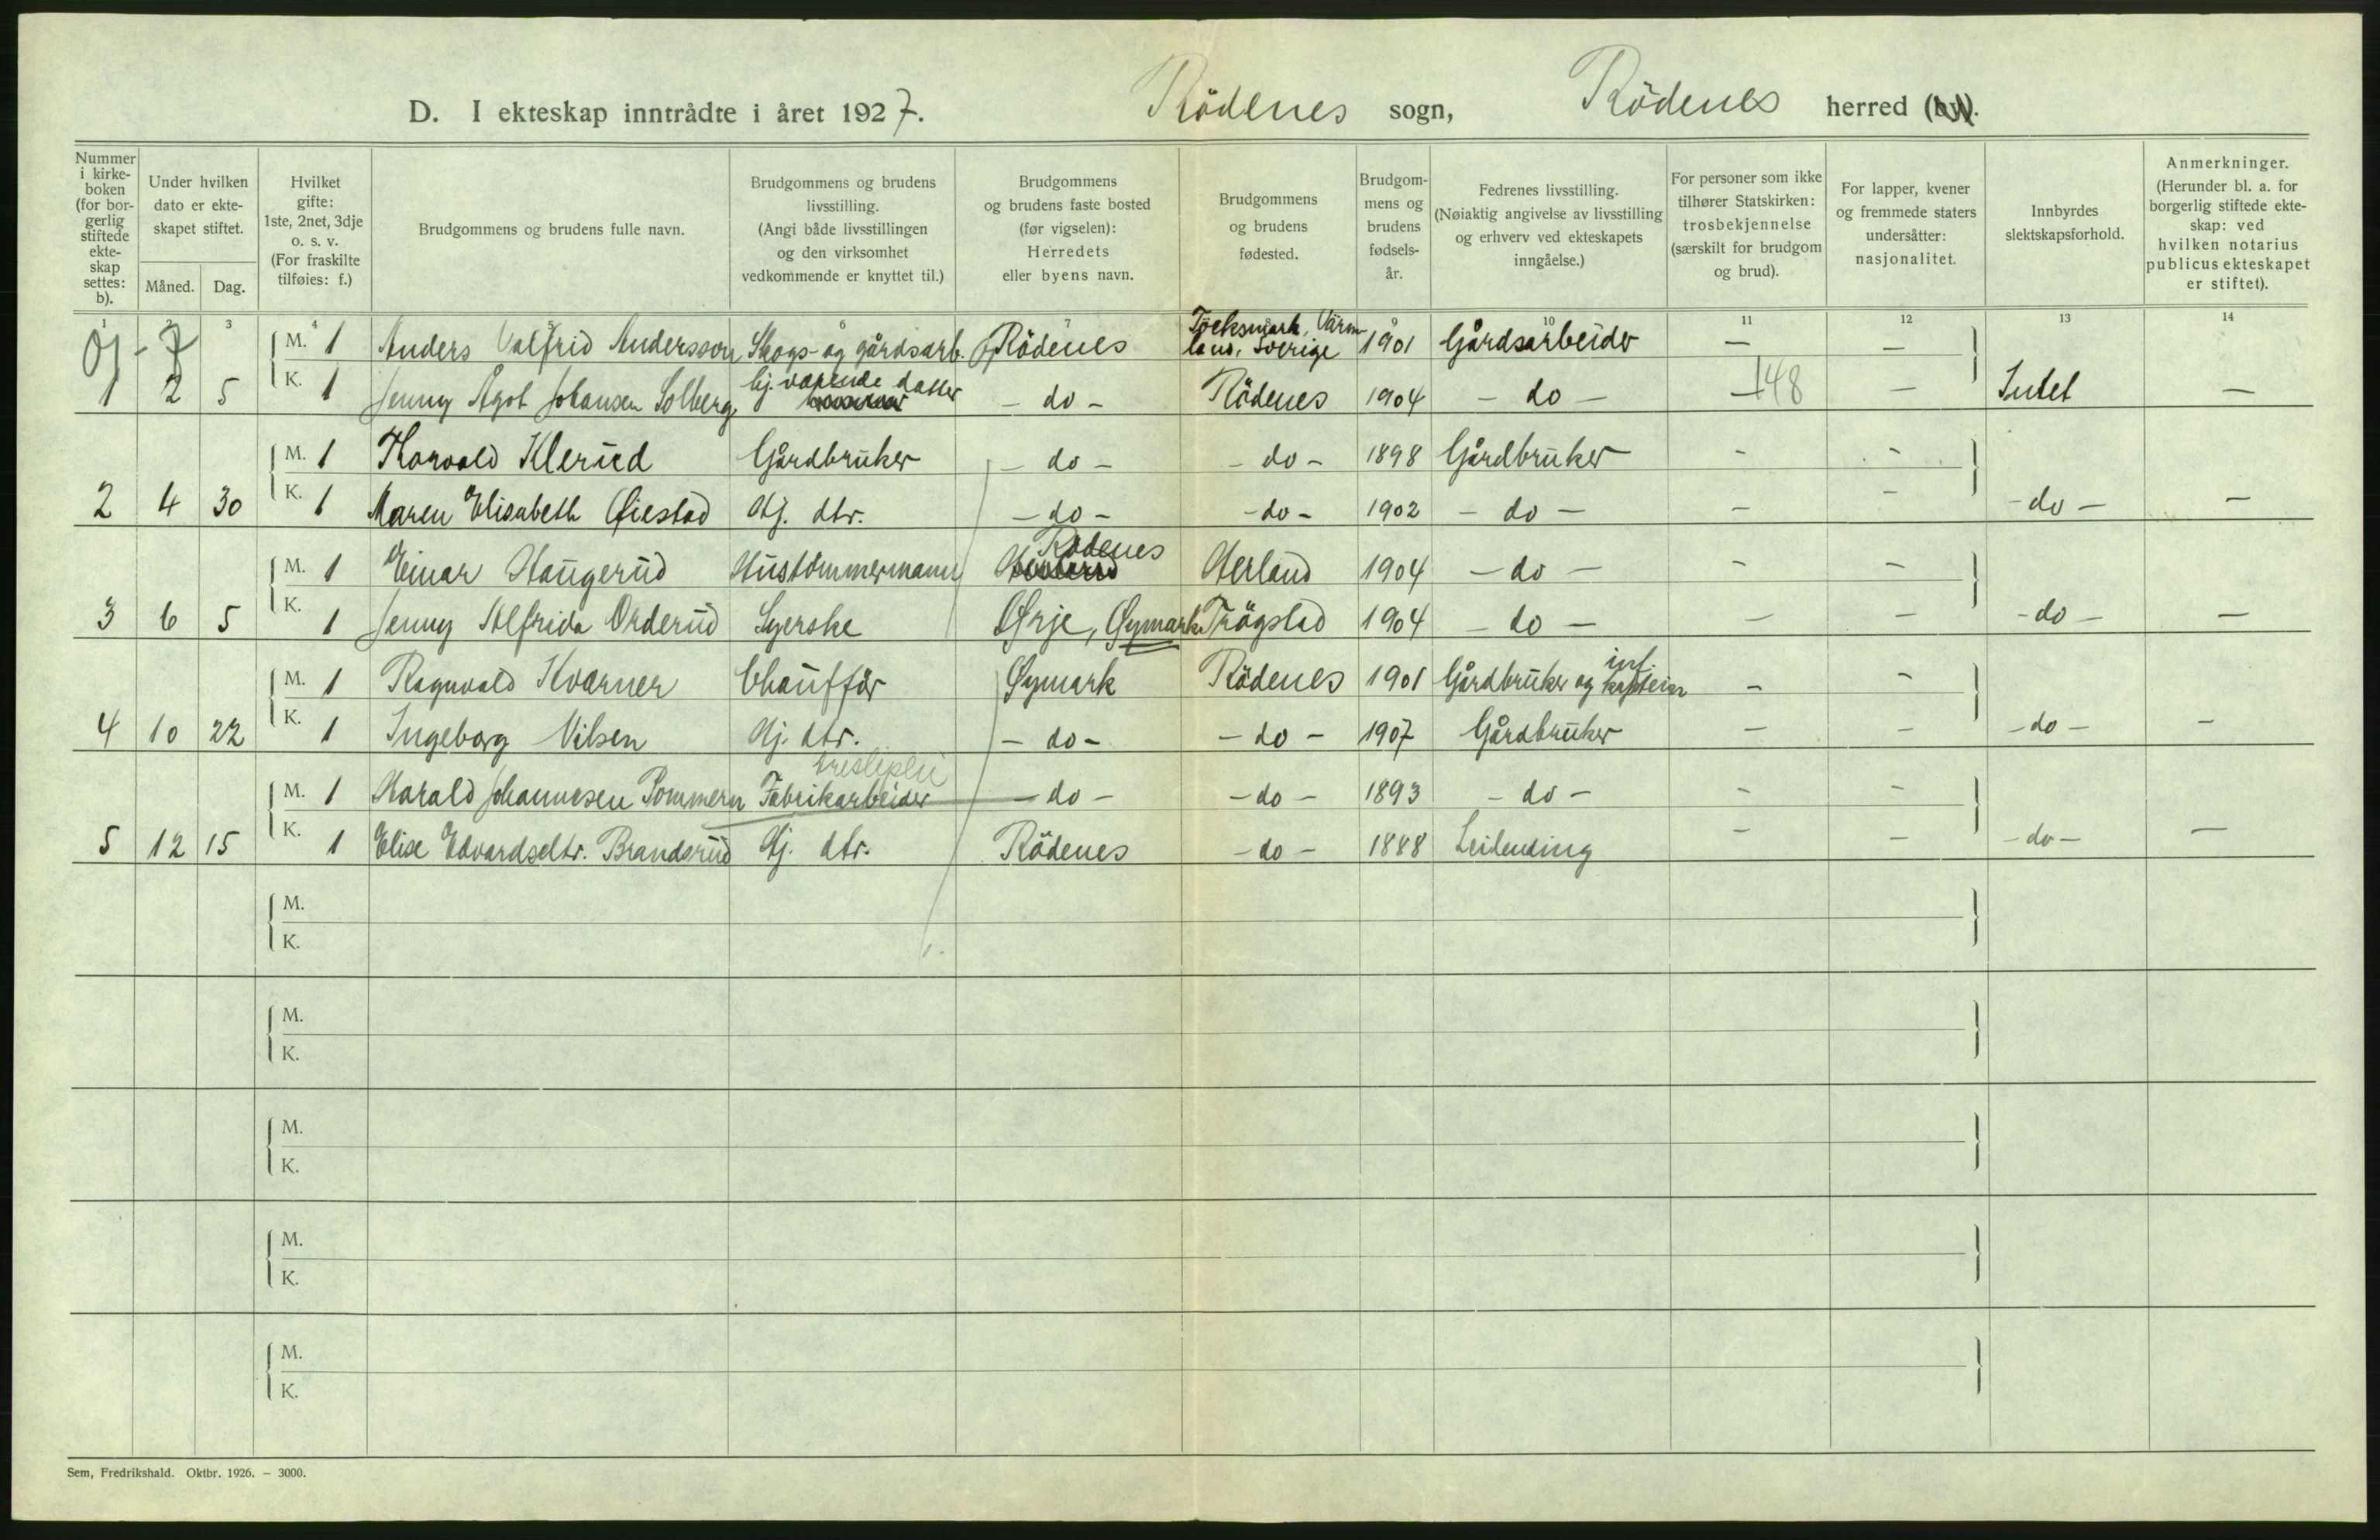 D. I ekteskap inntrådte i året 1927. Rödenes sogn, Rödenes herred (by).
Nummer i kirkeboken (for borgerlig stiftede ekteskap settes: b).
Under hvilken dato er ekteskapet stiftet.
Måned. Dag.
Hvilket gifte: 1ste, 2net, 3dje o. s. v. (For fraskilte tilføies: f.)
Brudgommens og brudens fulle navn.
Brudgommens og brudens livsstilling. (Angi både livsstillingen og den virksomhet vedkommende er knyttet til.)
Brudgommens og brudens faste bosted (før vigselen): Herredets eller byens navn.
Brudgommens og brudens fødested.
Brudgommens og brudens fødselsår.
Fedrenes livsstilling. (Nøiaktig angivelse av livsstilling og erhverv ved ekteskapets inngåelse.)
For personer som ikke tilhører Statskirken: trosbekjennelse (særskilt for brudgom og brud).
For lapper, kvener og fremmede staters undersåtter: nasjonalitet.
Innbyrdes slektskapsforhold.
Anmerkninger. (Herunder bl. a. for borgerlig stiftede ekteskap: ved hvilken notarius publicus ekteskapet er stiftet).
1 2 3 4 5 6 7 8 9 10 11 12 13 14
01-7
M. 1 Anders Valfrid Andersson Skogs- og gårdsarb. Rödenes Töcksmark, Värmland, Sverige 1901 Gårdsarbeider — —
1 2 5 K. 1 Jenny Ågot Johansen Solberg hj. værende datter - do - Rödenes 1904 - do - — 148 — Intet —
M. 1 Thorvald Klerud Gårdbruker - do - - do - 1898 Gårdbruker - -
2 4 30 K. 1 Maren Elisabeth Øiestad Hj. dtr. - do - - do - 1902 - do - - - - do - —
M. 1 Einar Haugerud Hustömmermann Rödenes Herland 1904 - do - - -
3 6 5 K. 1 Jenny Alfrida Orderud Syerske Ørje, Øymark Trögstad 1904 - do - - - - do - —
M. 1 Ragnvald Kvarner Chaufför Øymark Rödenes 1901 Gårdbruker og inf. kaptein - -
4 10 22 K. 1 Ingeborg Nilsen Hj. dtr. - do - - do - 1907 Gårdbruker - - - do - -
M. 1 Harald Johannesen Pommern Fabrikarbeider tresliperi - do - - do - 1893 - do - - -
5 12 15 K. 1 Elise Edvardsdtr. Brandsrud Hj. dtr. Rödenes - do - 1888 Leilending - - - do - —
M.
K.
M.
K.
M.
K.
M.
K.
M.
K.
Sem, Fredrikshald. Oktbr. 1926. – 3000.